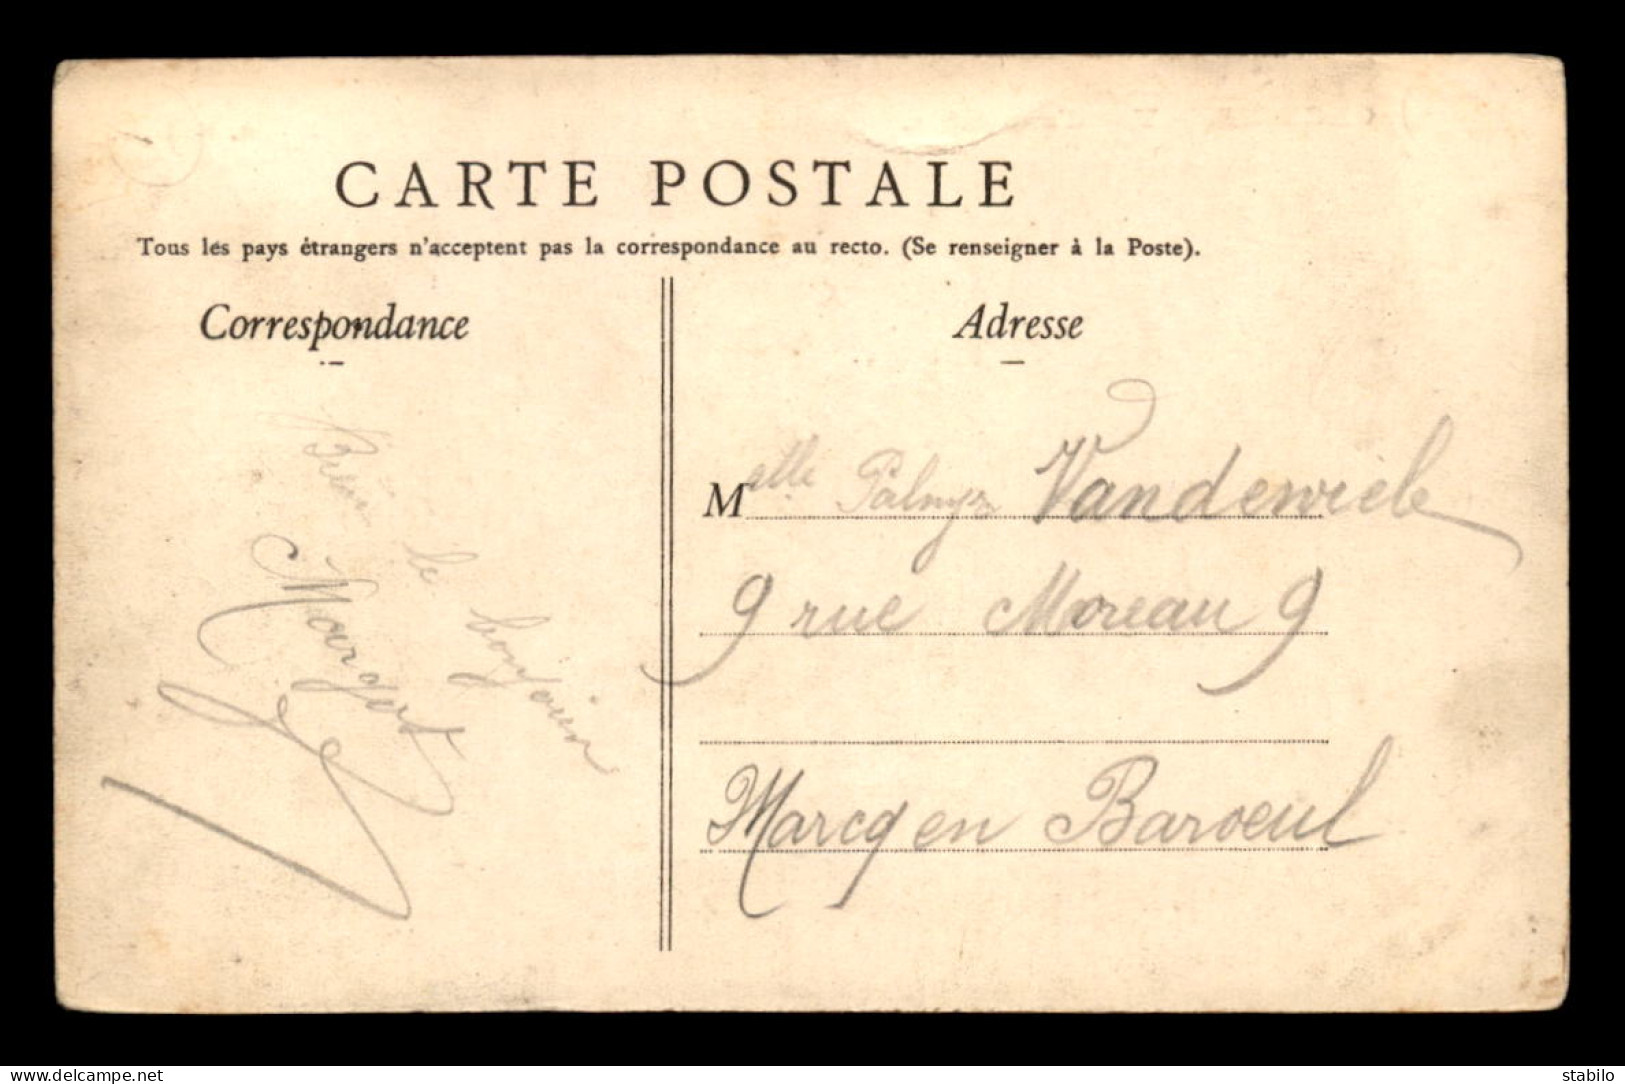 CARTE POSTALE
Tous les pays étrangers n'acceptent pas la correspondance au recto. (Se renseigner à la Poste).
Correspondance
Adresse
Bien
le bonjour
Margot
Melle Palmyr Vandewiele
9 rue Moreau 9
Marcq en Baroeul
www.delcampe.net
stabilo